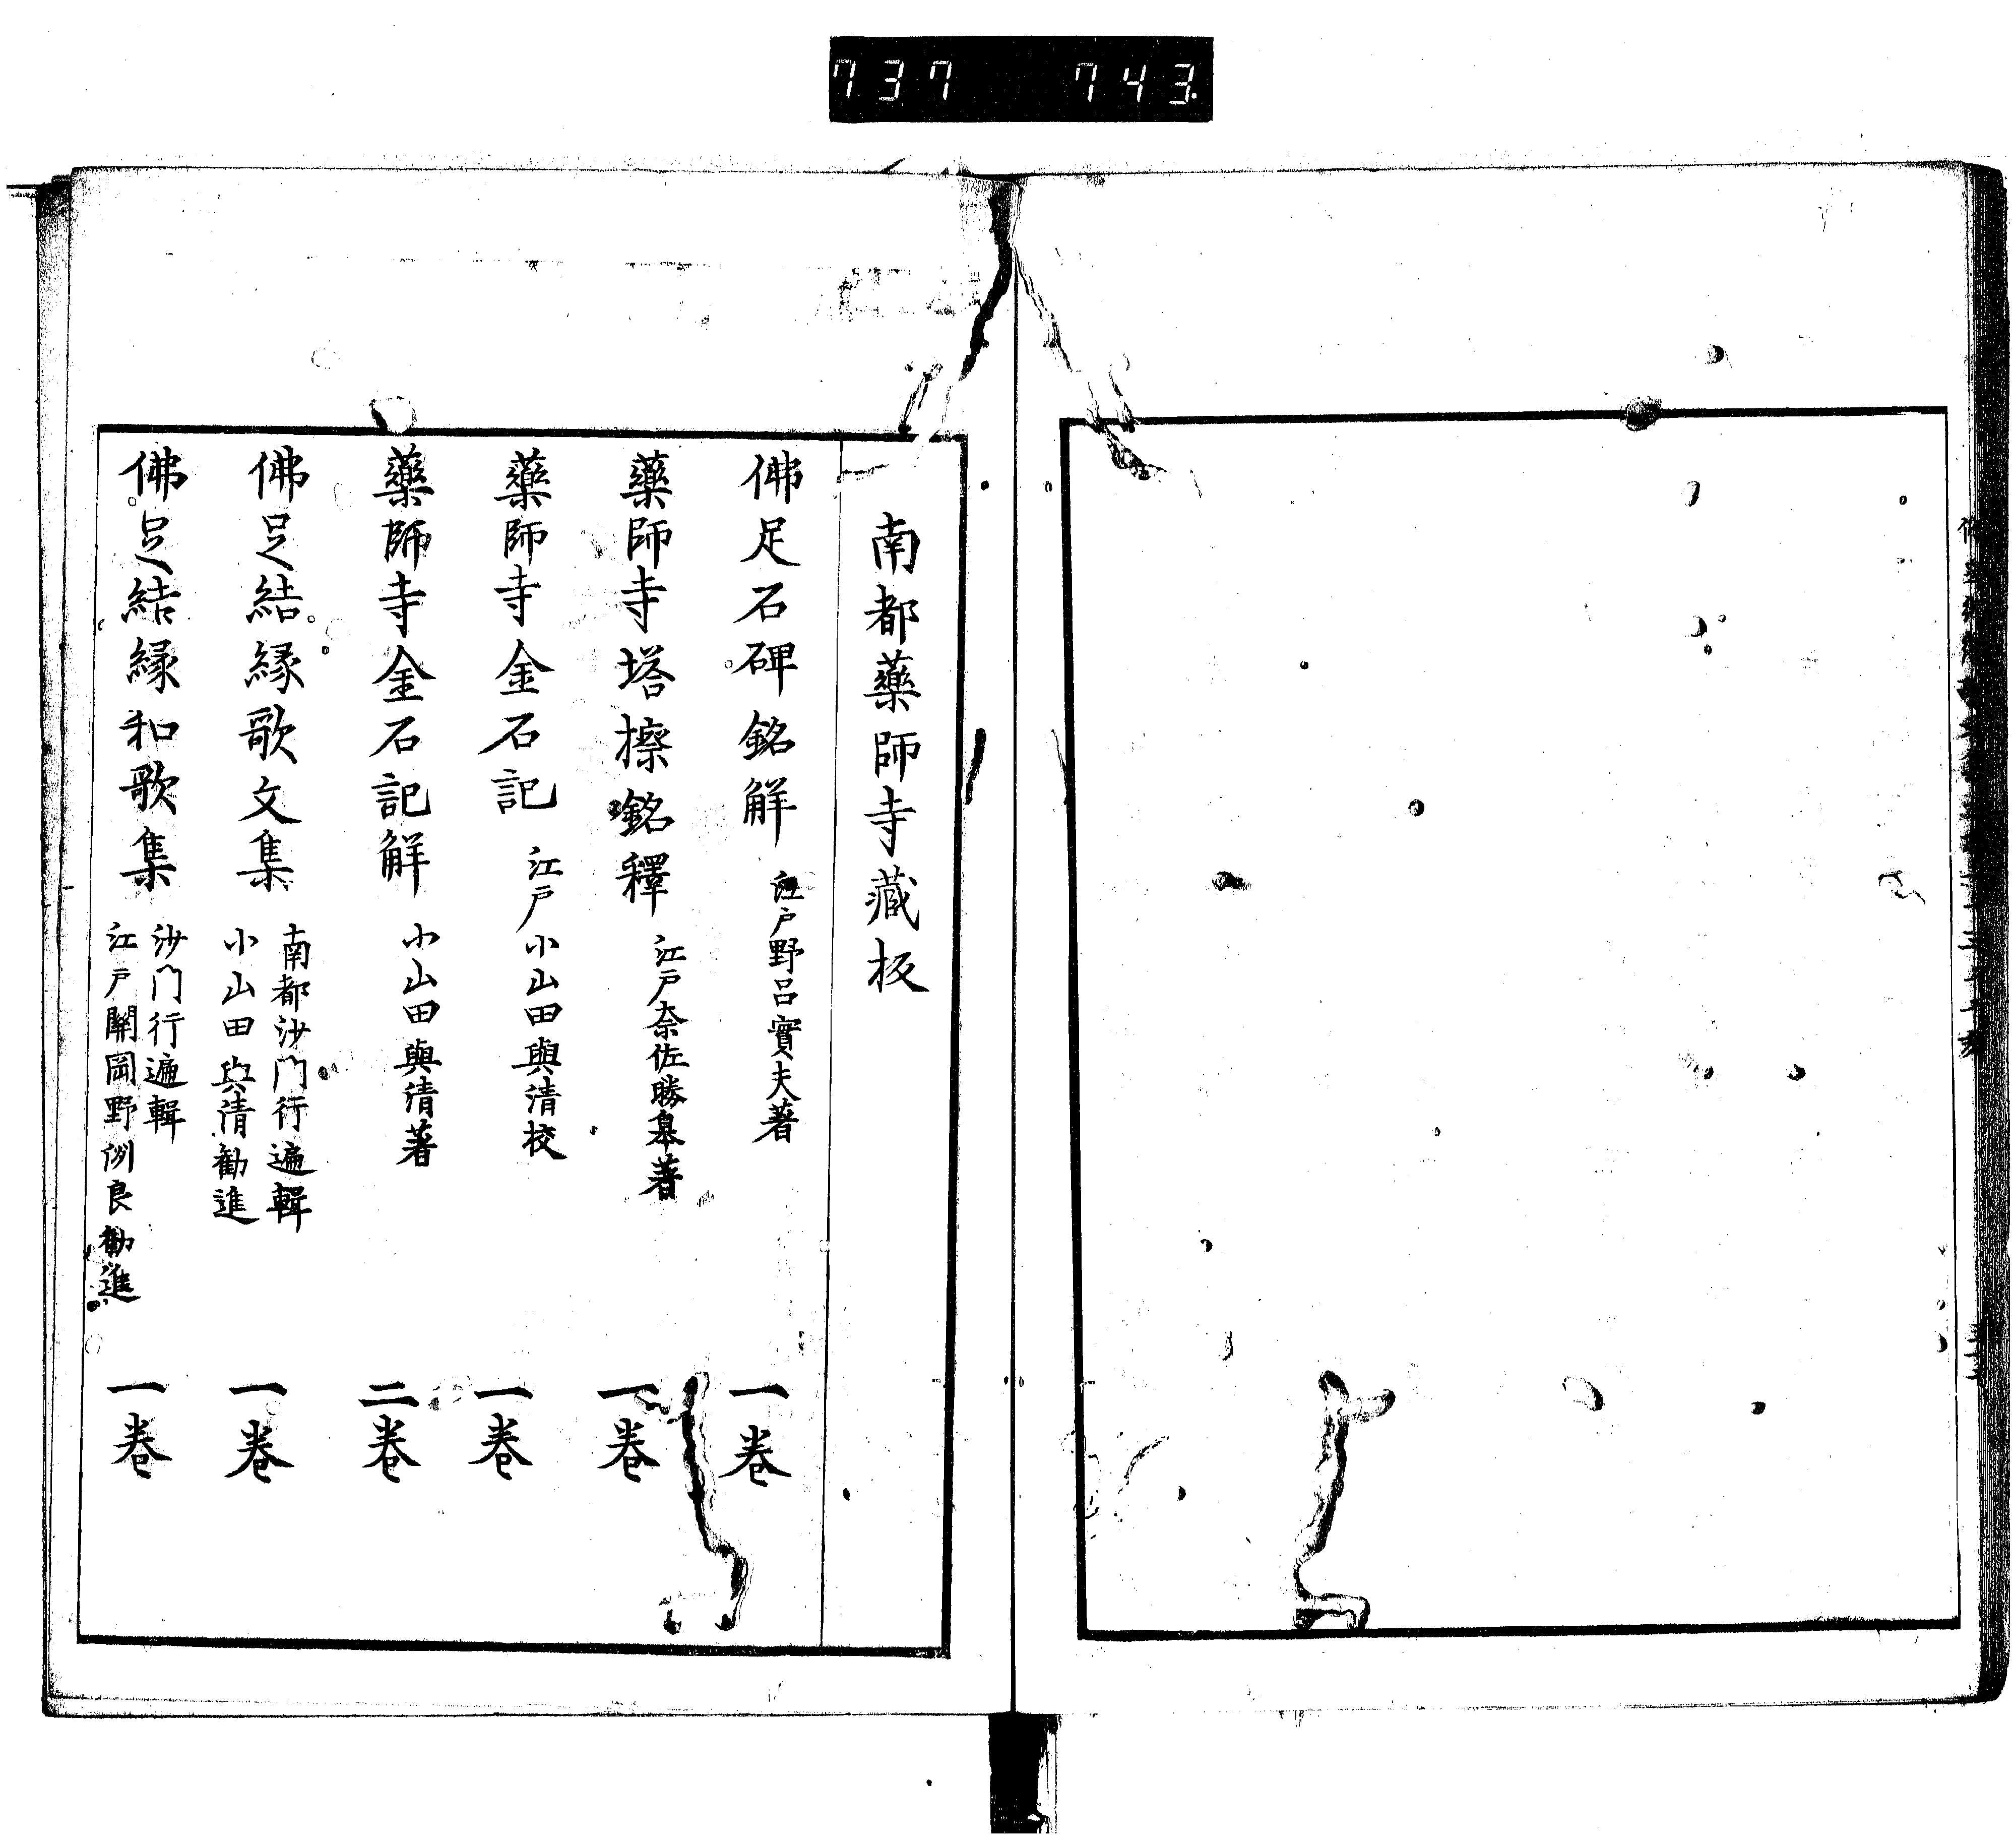 737 743
南都藥師寺藏板
佛足石碑銘解 江戸野呂實夫著 一卷
藥師寺塔擦銘釋 江戸奈佐勝皋著 一卷
藥師寺金石記 江戸小山田與清校 一卷
藥師寺金石記解 小山田與清著 二卷
佛足結緣歌文集 南都沙門行遍輯 小山田與清勸進 一卷
佛足結緣和歌集 沙門行遍輯 江戸關岡野洌良勸進 一卷